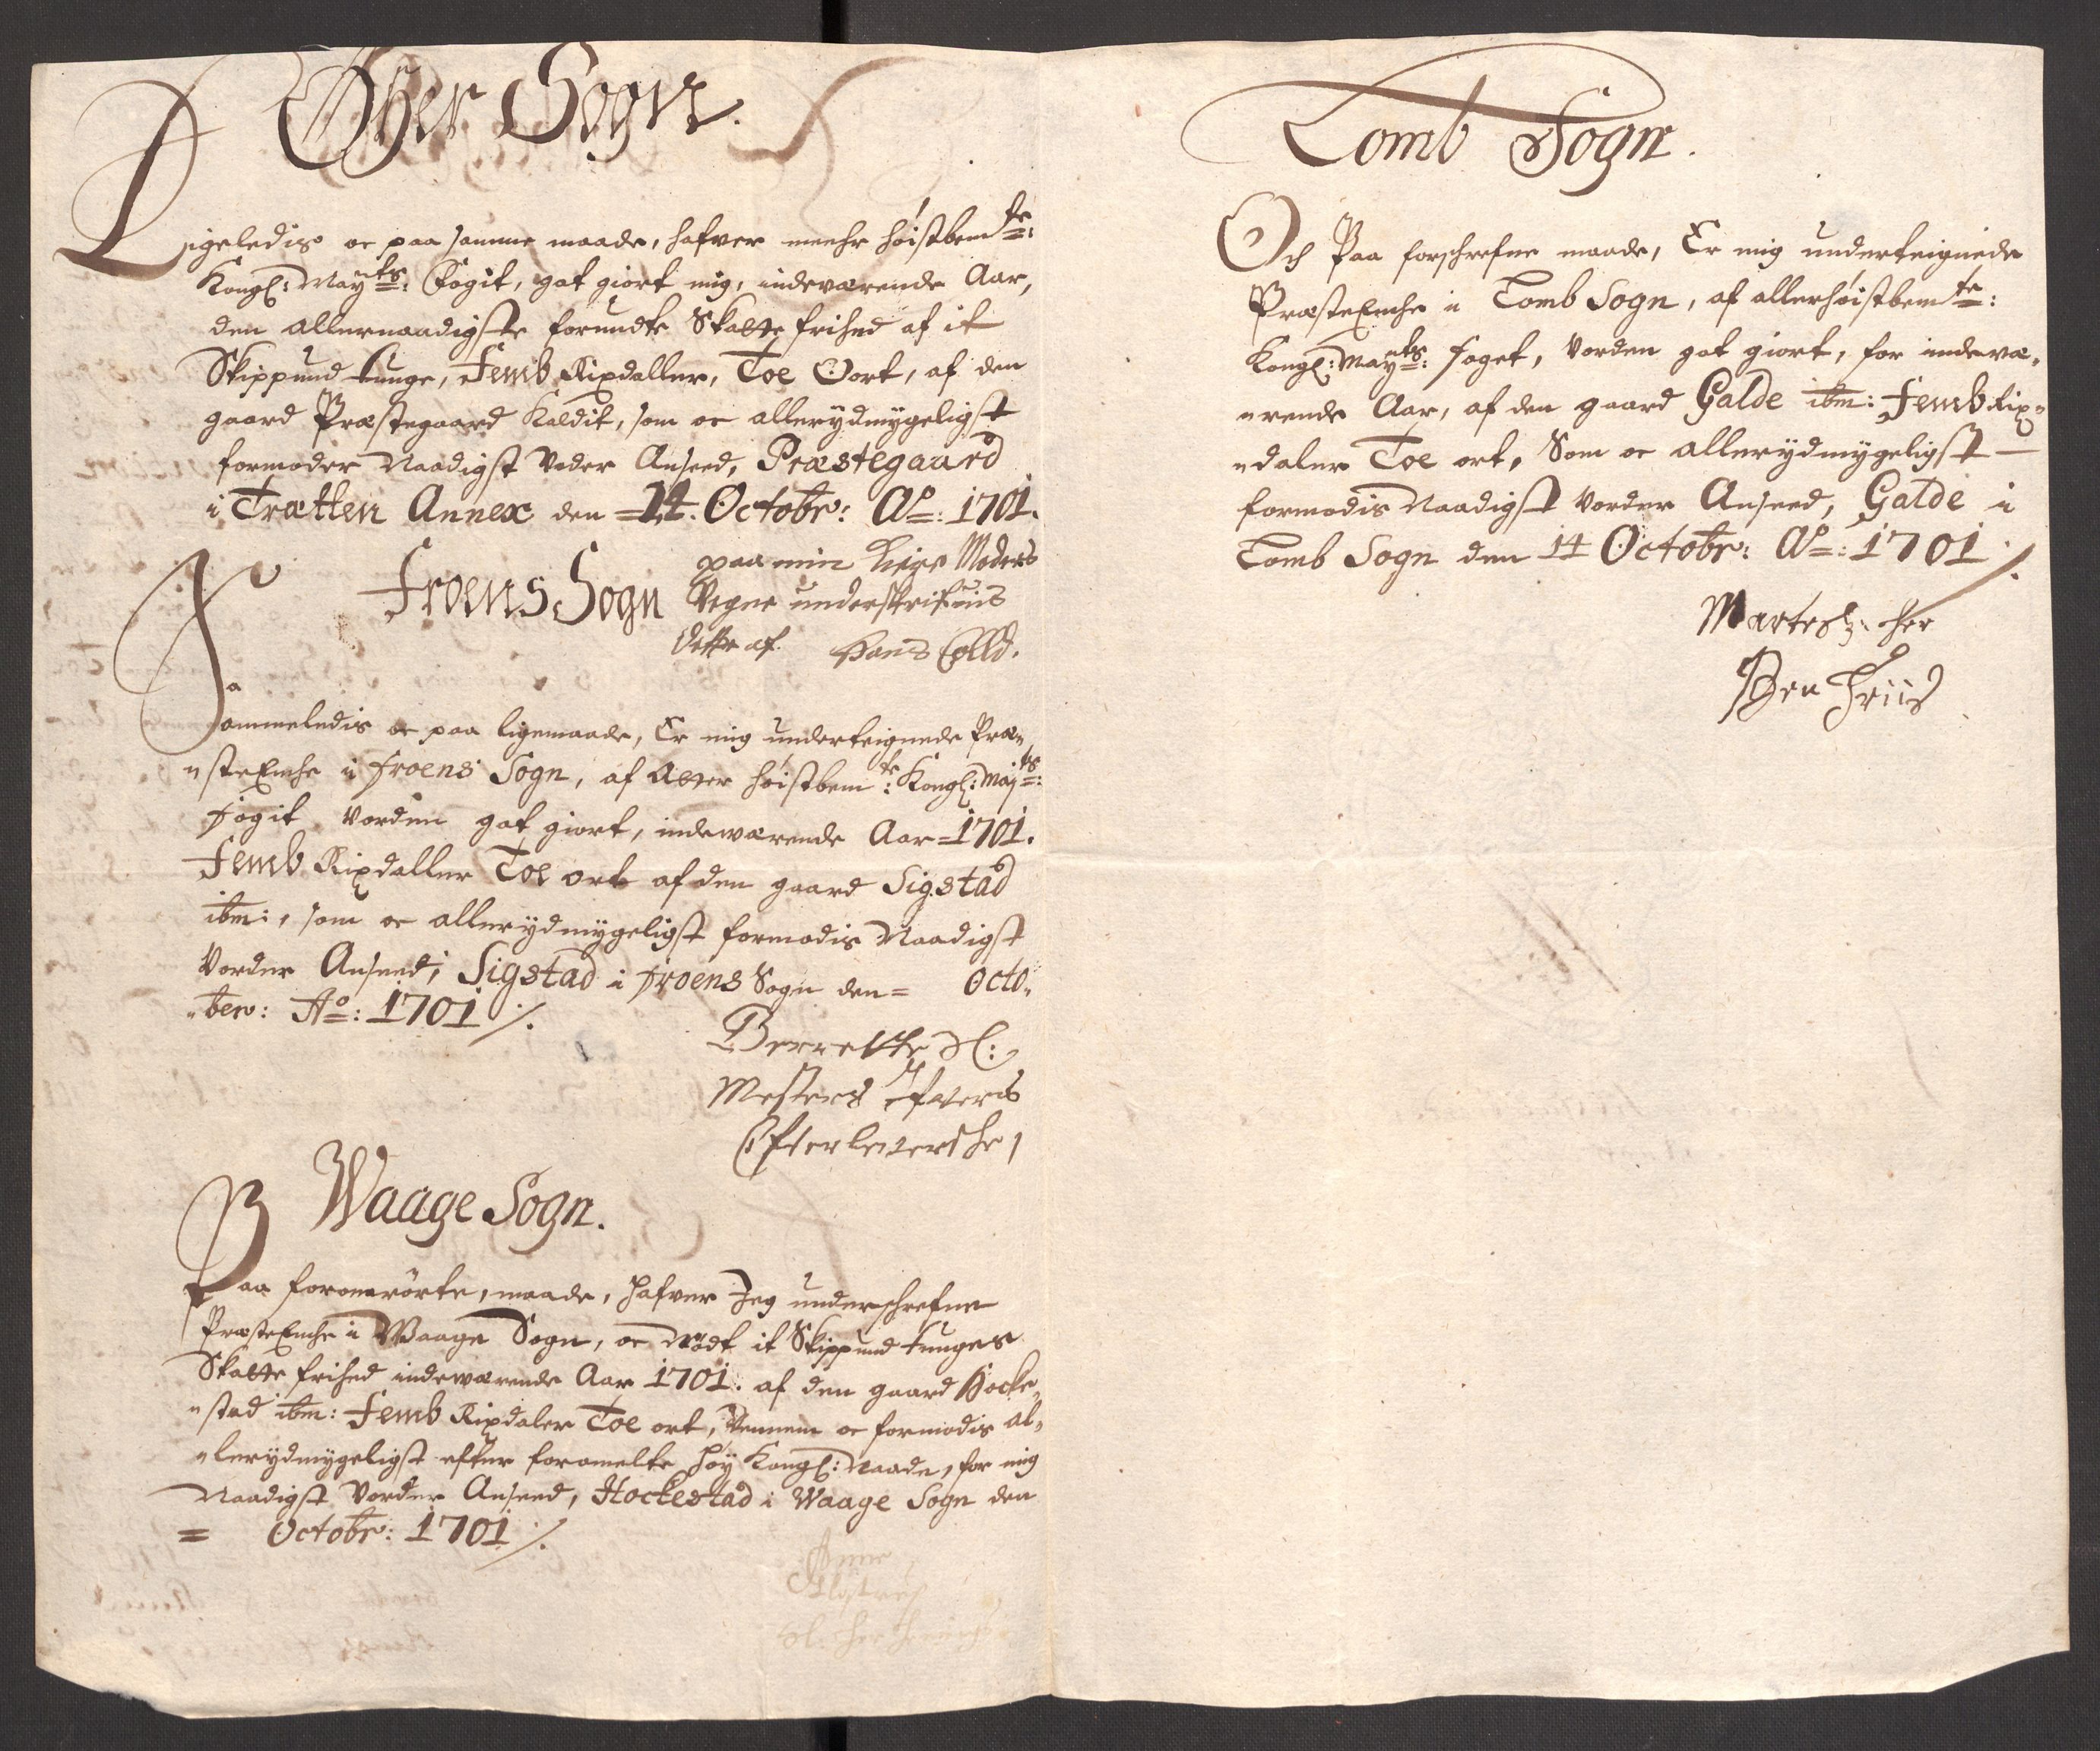 Öÿer Sogn.
Ligeledis oc paa samme maade, hafver meehr høistbemte:
Kongl: Mayts: Fogit, got giort mig, indeværende Aar,
den allernaadigste forundte Skatte frihed af it
Skippund tunge, Femb Rixdaller, Toe Oort, af den
gaard Præstegaard Kaldit, som oc allerydmygeligst
formoder Naadigst Vorder Anseed, Præstegaard
i Trætten Annex den =14. Octobr: Ao: 1701.
paa min kiere Moders
Vegne underskrifuis
dette af Hans Colld.
Froens Sogn
Sammeledis oc paa ligemaade, Er mig underteignede Præ„
„steEnche i Froens Sogn, af Aller høistbemte: Kongl: Mayts:
Fogit Vorden got giort, indeværende Aar=1701.
Femb Rixdaller Toe ort af den gaard Sigstad
ibm:, som oc allerydmygeligst formodis Naadigst
Vorder Anseed, Sigstad i Froens Sogn den= Octo„
„ber: Ao: 1701 ⁒.
Berrette Sl:
Mesters Ifvers
Efterleversche
Waage Sogn.
Paa foromrörte, maade, hafver Jeg underschrefne
PræsteEnche i Waage Sogn, oc Nödt it Skippund tunges
Skatte frihed indeværende Aar 1701. af den gaard Hocke„
„stad ibm: Femb Rixdaler Toe ort, Vennem oc formodis al„
„lerydmygeligst efter foromelte høy Kongl: Naade, for mig
Naadigst Vorder Anseed, Hockestad i Waage Sogn den
= Octobr: 1701 ⁒.
Anne
Sl: her
Lomb Sogn.
Och Paa forschrefne maade, Er mig underteignede
PræsteEnche i Lomb Sogn, af allerhøistbemte:
Kongl: Mayts: foget, Vorden got giort, for indevæ„
„rende Aar, af den gaard Galde ibm: Femb Rix„
„daler Toe ort, Som oc allerydmygeligst
formodis Naadigst Vorder Anseed, Galde i
Lomb Sogn den 14 Octobr: Ao: 1701 ⁒.
Marte Sl: her
Friis